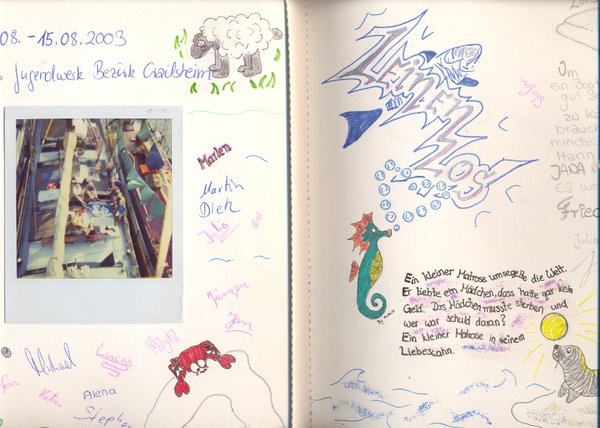 08. - 15.08.2003
Jugendwerk Bezirk Crailsheim
Marlen
Martin
Dietz
Julia
Jürgen
Jan
Michael
Lucas
Katrin
Alena
Stephan
Leinen
Los
Ein kleiner Matrose umsegelte die Welt.
Er liebte ein Mädchen, dass hatte gar kein
Geld. Das Mädchen musste sterben und
wer war schuld daran?
Ein kleiner Matrose in seinem
Liebeswahn.
Um
ein
gut
zu
brauch
mindes
Mann
JADA
Es we
Fried
Julia